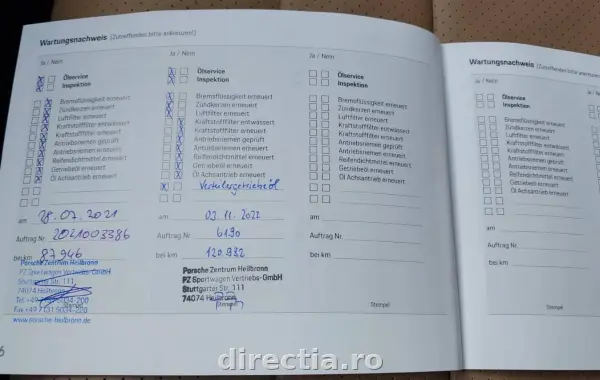 Wartungsnachweis (Zutreffendes bitte ankreuzen!)
Ja / Nein
Ölservice
Inspektion
Bremsflüssigkeit erneuert
Zündkerzen erneuert
Luftfilter erneuert
Kraftstofffilter entwässert
Kraftstofffilter erneuert
Antriebsriemen geprüft
Antriebsriemen erneuert
Reifendichtmittel erneuert
Getriebeöl erneuert
Öl Achsantrieb erneuert
am 28.07.2021
Auftrag Nr. 2021003386
bei km 87946
Porsche Zentrum Heilbronn
PZ Sportwagen Vertriebs-GmbH
Stuttgarter Str. 111
74074 Heilbronn
Tel. +49 7131 5034-200
Fax +49 7131 5034-220
www.porsche-heilbronn.de
Stempel
6
Ja / Nein
Ölservice
Inspektion
Bremsflüssigkeit erneuert
Zündkerzen erneuert
Luftfilter erneuert
Kraftstofffilter entwässert
Kraftstofffilter erneuert
Antriebsriemen geprüft
Antriebsriemen erneuert
Reifendichtmittel erneuert
Getriebeöl erneuert
Öl Achsantrieb erneuert
x Verteilergetriebeöl
am 03.11.2022
Auftrag Nr. 6190
bei km 120.932
Porsche Zentrum Heilbronn
PZ Sportwagen Vertriebs-GmbH
Stuttgarter Str. 111
74074 Heilbronn
Stempel
Ja / Nein
Ölservice
Inspektion
Bremsflüssigkeit erneuert
Zündkerzen erneuert
Luftfilter erneuert
Kraftstofffilter entwässert
Kraftstofffilter erneuert
Antriebsriemen geprüft
Antriebsriemen erneuert
Reifendichtmittel erneuert
Getriebeöl erneuert
Öl Achsantrieb erneuert
am
Auftrag Nr.
bei km
Stempel
Wartungsnachweis (Zutreffendes bitte
Ja / Nein
Ölservice
Inspektion
Bremsflüssigkeit erneuert
Zündkerzen erneuert
Luftfilter erneuert
Kraftstofffilter entwässert
Kraftstofffilter erneuert
Antriebsriemen geprüft
Antriebsriemen erneuert
Reifendichtmittel erneuert
Getriebeöl erneuert
Öl Achsantrieb erneuert
am
Auftrag Nr.
bei km
Stempel
directia.ro